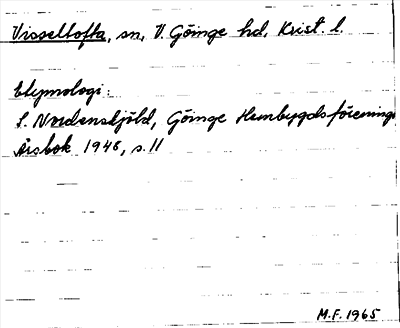 Visseltofta, sn, V. Göinge hd, Krist. l.
Etymologi:
S. Nordenskjöld, Göinge Hembygdsförenings
årsbok 1946, s. 11
M.F. 1965